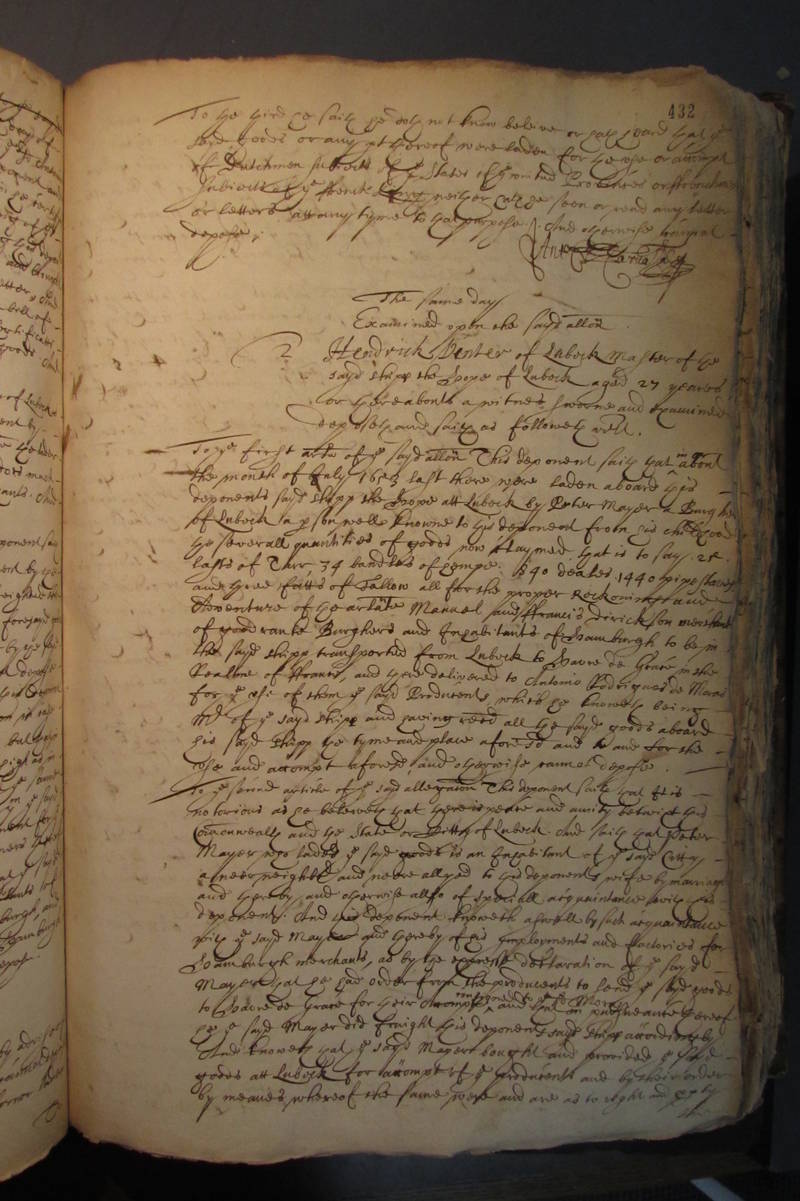 432
To the third he saith hee doth not know beleive or hath heard that the
sayd goods or any pt thereof were laden for the use or accompt
of Dutchmen subiects of the States of the united Provinces or ffrenchmen
subiects of the french King neither hath he seen or read any letter
or letters att any tyme to that purpose, And otherwise cannot
depose.
The same day
Examined upon the sayd allon
2 Hendrick Venter of Lubeck Master of the
sayd shipp the Hope of Lubeck aged 27 yeares
or thereabouts a witnes sworne and examined
deposeth and saith as followeth vizt.
To the first arle of the sayd allon This deponent saith that in about
the month of July 1653 last there were laden aboard his
deponents sayd shipp the Hope att Lubeck by Peter Mayer a Burgher
of Lubeck (a pson well knowne to this deponent from his childhood
the severall quantities of goods now claymed, that is to say
lasts of Tarr, 34 bundles of hempe, 840 deales 1440 pipe staves
and three fatts of Tallow all for the proper Reckoning and
Adventure of the arlate Manuel and ffrancis Dirickson merchants
of good rank Burghers and Inhabitants of Hamburgh to be in
the sayd shipp transported from Lubeck to Havre de Grace in the
Realme of ffrance, and there delivered to Antonio Rodrigues de
for the use of them the sayd Producents which he knoweth being
Mr of the sayd shipp and having reced all the sayd goods aboard
his sayd shipp the tyme and place aforesd and to and for the
use and accompt aforesd, and otherwise cannot depose.
To the second article of the sayd allegation This deponent saith that it is
notorious as he beleiveth that there is peace and amity betwixt this
Commonwealth and the State or Citty of Lubeck. And saith that Peter
Mayer who laded the sayd goods is an Inhabitant of the sayd Citty
a neer neighbour and neere allyed to this deponents wife by marriage
and thereby and otherwise allso of speciall acquaintance with this
deponent. And this deponent knoweth aswell by such acquaintance
with the sayd Mayer and thereby of his imployments and factories for
Hamburgh merchants, as by the expresse declaration of the sayd
Mayer that he had order from the producents to send the sayd goods
to Havre de Grace for their accompt and that in pursuance thereof
he the sayd Mayer did fraight this deponents sayd shipp accordingly
And knoweth that the sayd Mayer bought and provided the sayd
goods att Lubeck for accompt of the producents and by their order
by meanes whereof the same were and are as to right and